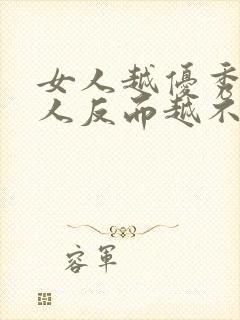 女人越優秀
人反而越不
容軍